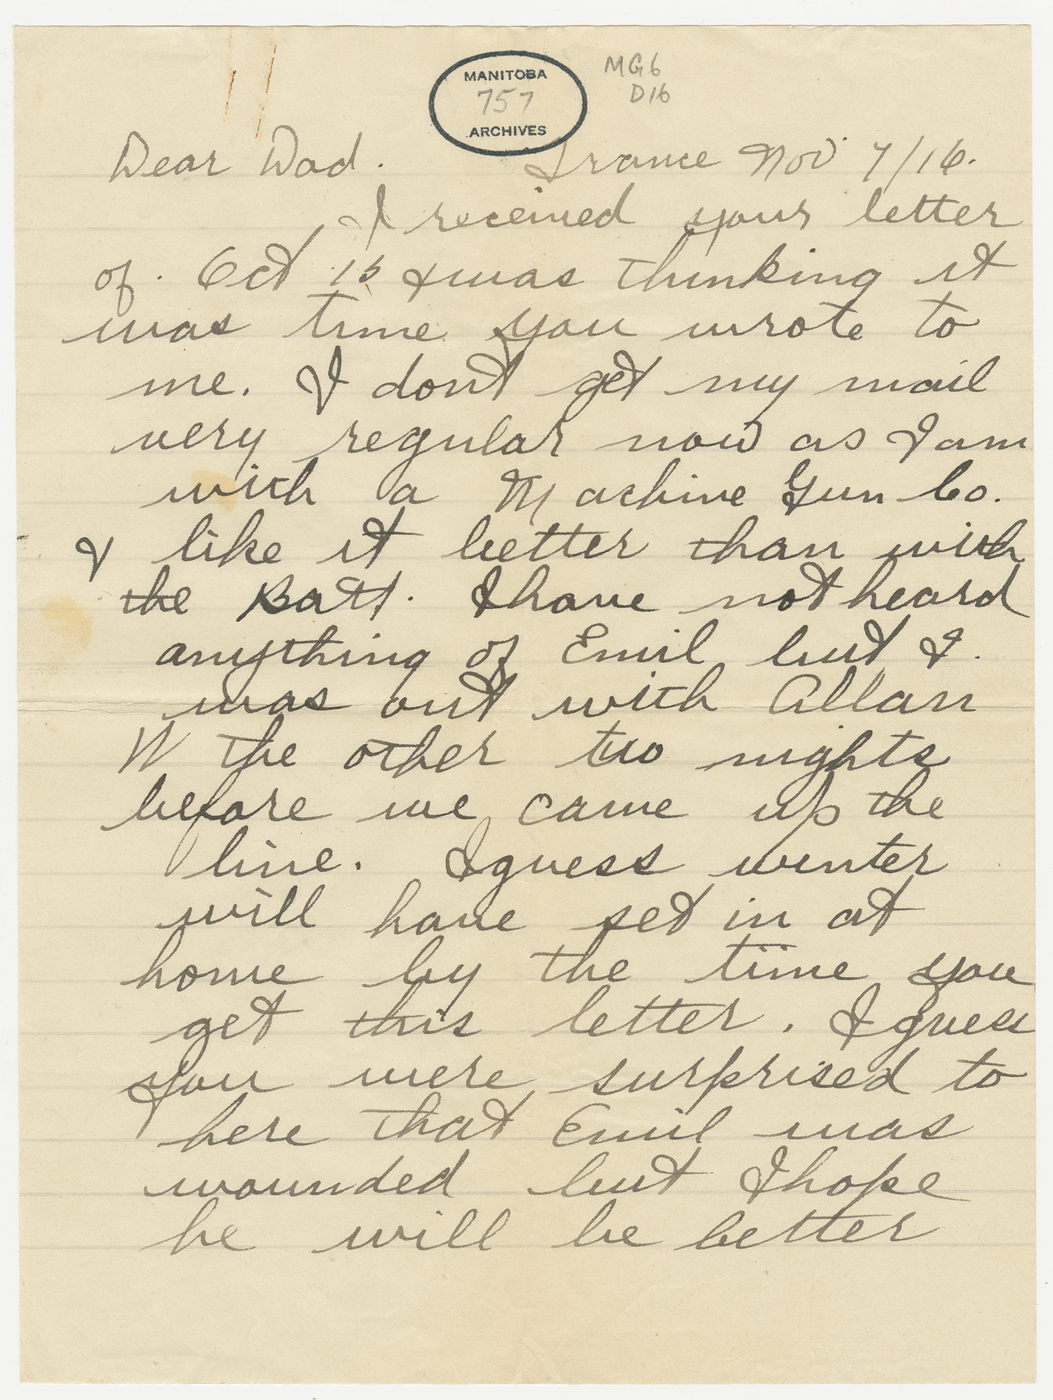 MANITOBA
757
ARCHIVES
MG6
D16
Dear Dad. France Nov 7/16.
I received your letter
of. Oct 15 & was thinking it
was time you wrote to
me. I don't get my mail
very regular now as I am
with a Machine Gun Co.
I like it better than with
the Batt. I have not heard
anything of Emil but I.
was out with Allan
W the other two nights
before we came up the
line. I guess winter
will have set in at
home by the time you
get this letter. I guess
you were surprised to
here that Emil was
wounded but I hope
he will be better